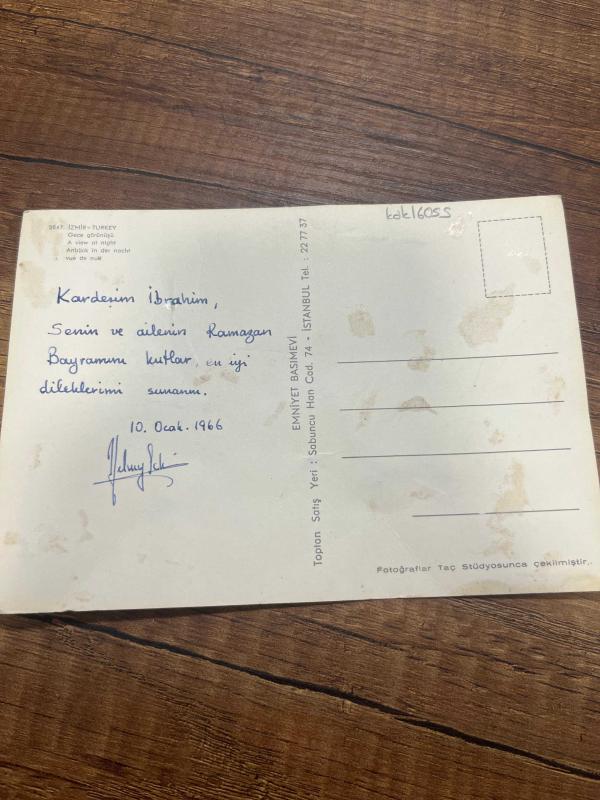 3547. İZMİR-TURKEY
Gece görünüşü
A view at night
Anblick in der nacht
vue de nuit
Kardeşim İbrahim,
Senin ve ailenin Ramazan
Bayramını kutlar, en iyi
dileklerimi sunarım.
10. Ocak. 1966
EMNİYET BASIMEVİ
Toptan Satış Yeri : Sabuncu Han Cad. 74 - İSTANBUL Tel. : 22 77 37
kdk1605S
Fotoğraflar Taç Stüdyosunca çekilmiştir.